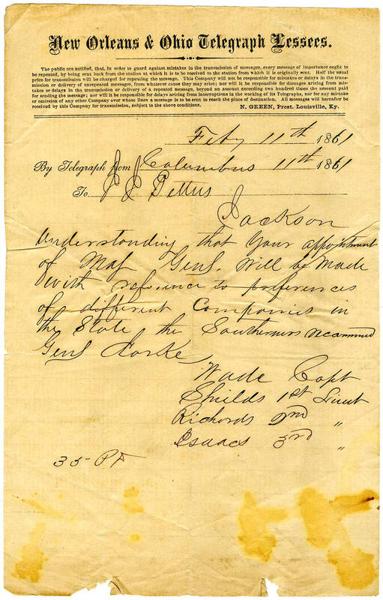 New Orleans & Ohio Telegraph Lessees.
The public are notified, that, in order to guard against mistakes in the transmission of messages, every message of importance ought to
be repeated, by being sent back from the station at which it is to be received to the station from which it is originally sent. Half the usual
price for transmission will be charged for repeating the message. This Company will not be responsible for mistakes or delays in the trans-
mission or delivery of unrepeated messages, from whatever cause they may arise; nor will it be responsible for damages arising from mis-
takes or delays in the transmission or delivery of a repeated message, beyond an amount exceeding two hundred times the amount paid
for sending the message; nor will it be responsible for delays arising from interruptions in the working of its Telegraph, nor for any mistake
or omission of any other Company over whose lines a message is to be sent to reach the place of destination. All messages will hereafter be
received by this Company for transmission, subject to the above conditions. N. GREEN, Prest. Louisville, Ky.
Feby 11th 1861
By Telegraph from Columbus 11th 1861
To J J Pettus
Jackson
Understanding that Your appointment
of Maj Genl. Will be Made
With reference to preferences
of different Companies in
the State the Southerners recommend
Genl
Wade Capt
Shields 1st Lieut
Richards 2nd "
Isaacs 3rd "
35